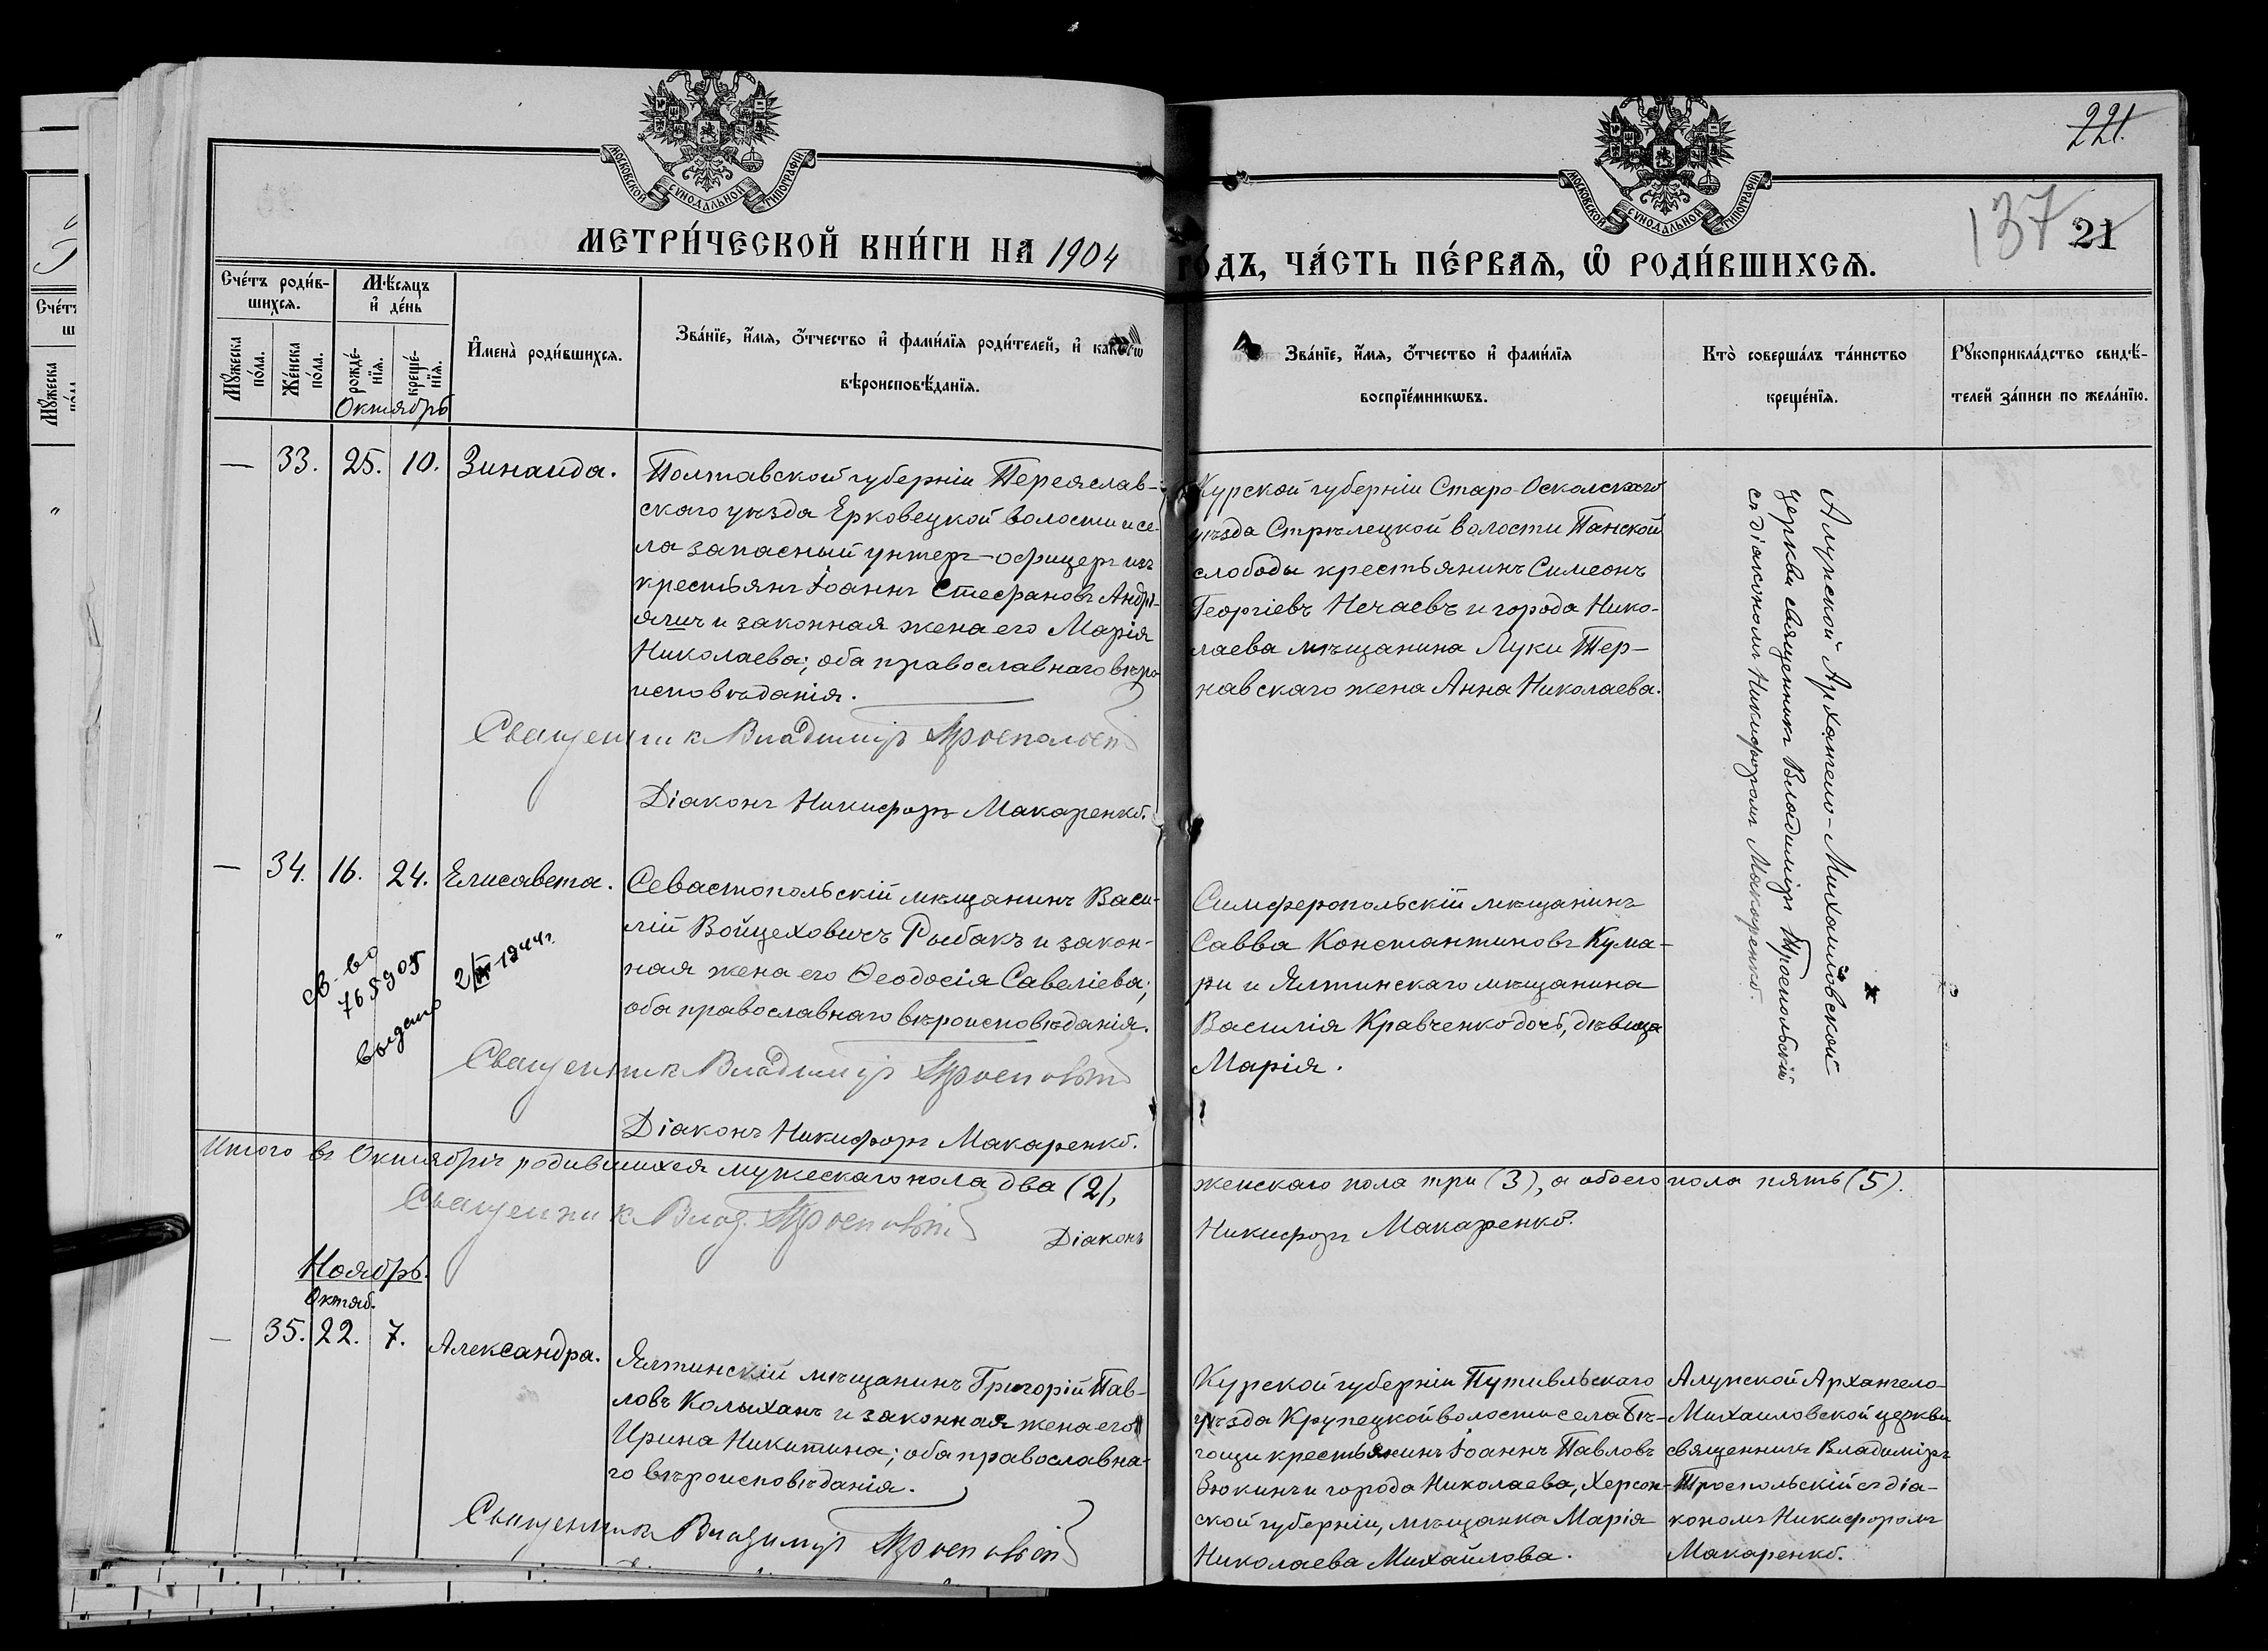 МОСКОВСКОЙ СУНОДАЛЬНОЙ ТИПОГРАФІИ
МОСКОВСКОЙ СУНОДАЛЬНОЙ ТИПОГРАФІИ
221.
137
21
МЕТРИ́ЧЕСКОЙ КНИ́ГИ НА 1904
ГО́ДЪ, ЧА́СТЬ ПЕ́РВАЯ, Ѡ РОДИ́ВШИХСЯ.
Сче́тъ роди́в-
шихся.
Мꙋ́жеска по́ла.
Же́нска по́ла.
Мѣ́сяцъ
и҆ де́нь
рожде́-
нїя.
креще́-
нїя.
И҆мена̀ роди́вшихся.
Зва́нїе, и҆́мя, ѻ҆́тчество и҆ фами́лїя роди́телей, и҆ како́гѡ
вѣроисповѣ́данїя.
Зва́нїе, и҆́мя, ѻ҆́тчество и҆ фами́лїя
воспрїе́мникѡвъ.
Кто̀ соверша́лъ та́инство
креще́нїя.
Рꙋкоприкла́дство свидѣ́-
телей за́писи по жела́нїю.
Октябрь
— 33. 25. 10. Зинаида.
Полтавской губерніи Переяслав-
скаго уѣзда Ерковецкой волости и се-
ла запасный унтеръ-офицеръ изъ
крестьянъ Іоаннъ Стефановъ Андрі-
яшъ и законная жена его Марія
Николаева; оба православнаго вѣро-
исповѣданія.
Священникъ Владиміръ Троепольскій
Діаконъ Никифоръ Макаренко.
Курской губерніи Старо-Оскольскаго
уѣзда Стрѣлецкой волости Панской
слободы крестьянинъ Симеонъ
Георгіевъ Нечаевъ и города Нико-
лаева мѣщанина Луки Тер-
навскаго жена Анна Николаева.
Алупкской Архангело-Михайловской
церкви священникъ Владиміръ Троепольскій
съ діакономъ Никифоромъ Макаренко.
— 34. 16. 24. Елисавета.
Севастопольскій мѣщанинъ Васи-
лій Войцеховичъ Рыбакъ и закон-
ная жена его Ѳеодосія Савеліева;
оба православнаго вѣроисповѣданія.
Священникъ Владиміръ Троепольскій
Діаконъ Никифоръ Макаренко.
св-во
765905
выдано
1944г.
Симферопольскій мѣщанинъ
Савва Константиновъ Кума-
ри и Ялтинскаго мѣщанина
Василія Кравченко дочь, дѣвица
Марія.
Итого въ Октябрѣ родившихся мужескаго пола два (2),
женскаго пола три (3), а обоего пола пять (5).
Священникъ Влад. Троепольскій
Діаконъ
Никифоръ Макаренко.
Ноябрь.
Октяб.
— 35. 22. 7. Александра.
Ялтинскій мѣщанинъ Григорій Пав-
ловъ Колыханъ и законная жена его
Ирина Никитина; оба православна-
го вѣроисповѣданія.
Священникъ Владиміръ Троепольскій
Курской губерніи Путивльскаго
уѣзда Крупецкой волости села Бѣ-
гощи крестьянинъ Іоаннъ Павловъ
Зюкинъ и города Николаева, Херсон-
ской губерніи, мѣщанка Марія
Николаева Михайлова.
Алупкской Архангело-
Михаиловской церкви
священникъ Владиміръ
Троепольскій съ діа-
кономъ Никифоромъ
Макаренко.